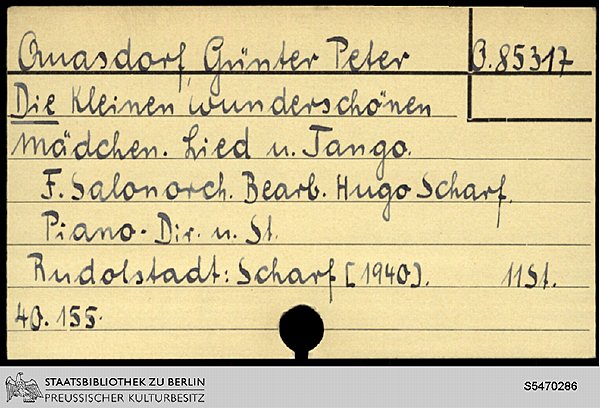 Omasdorf, Günter Peter O. 85317
Die kleinen wunderschönen
Mädchen. Lied u. Tango.
F. Salonorch. Bearb. Hugo Scharf.
Piano-Dir. u. St.
Rudolstadt: Scharf [1940]. 11 St.
40. 155.
STAATSBIBLIOTHEK ZU BERLIN
PREUSSISCHER KULTURBESITZ
S5470286